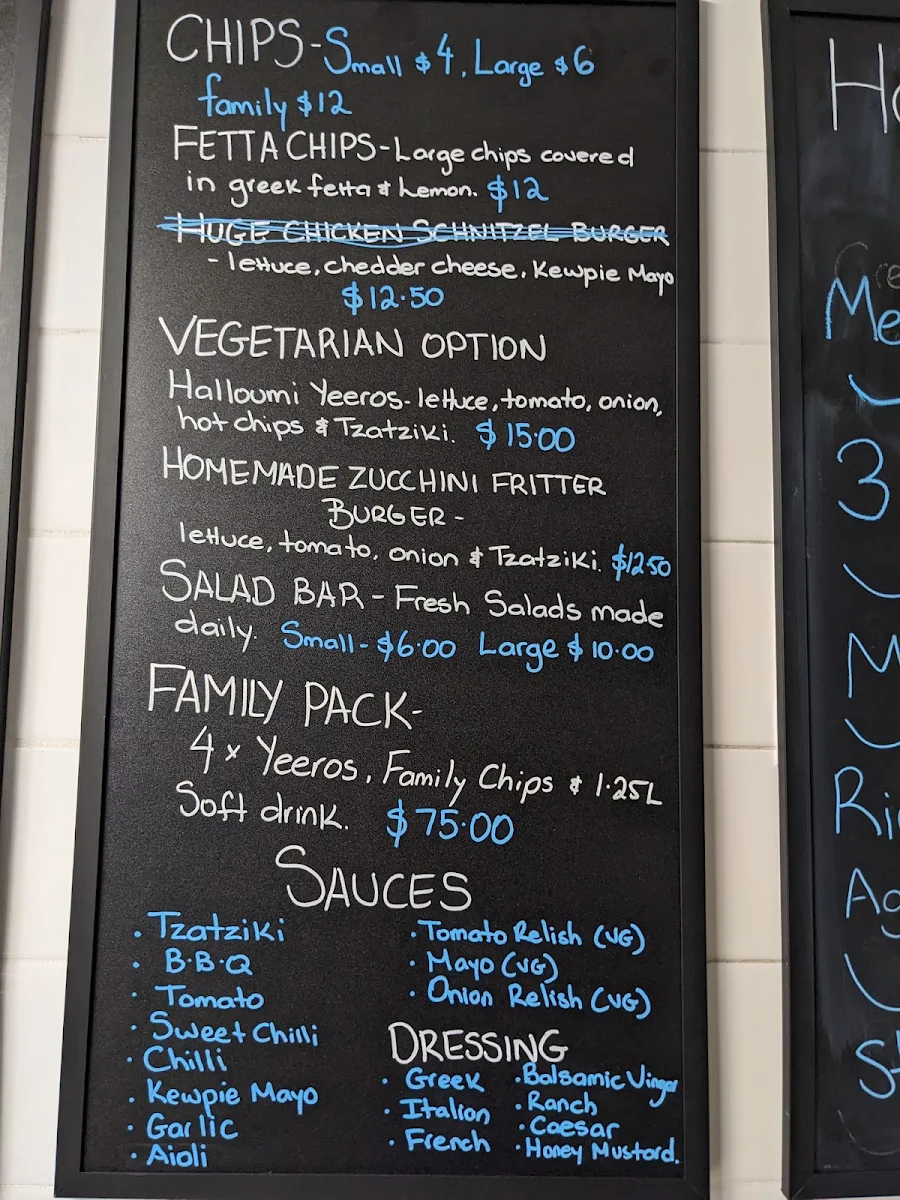 CHIPS - Small $4, Large $6
family $12
FETTA CHIPS - Large chips covered
in greek fetta & Lemon. $12
HUGE CHICKEN SCHNITZEL BURGER
- lettuce, chedder cheese, Kewpie Mayo
$12.50
VEGETARIAN OPTION
Halloumi Yeeros - lettuce, tomato, onion,
hot chips & Tzatziki. $15.00
HOMEMADE ZUCCHINI FRITTER
BURGER -
lettuce, tomato, onion & Tzatziki. $12.50
SALAD BAR - Fresh Salads made
daily. Small - $6.00 Large $10.00
FAMILY PACK -
4 x Yeeros, Family Chips & 1.25L
Soft drink. $75.00
SAUCES
• Tzatziki
• B.B.Q
• Tomato
• Sweet Chilli
• Chilli
• Kewpie Mayo
• Garlic
• Aioli
• Tomato Relish (VG)
• Mayo (VG)
• Onion Relish (VG)
DRESSING
• Greek
• Italion
• French
• Balsamic Vinger
• Ranch
• Caesar
• Honey Mustard.
3